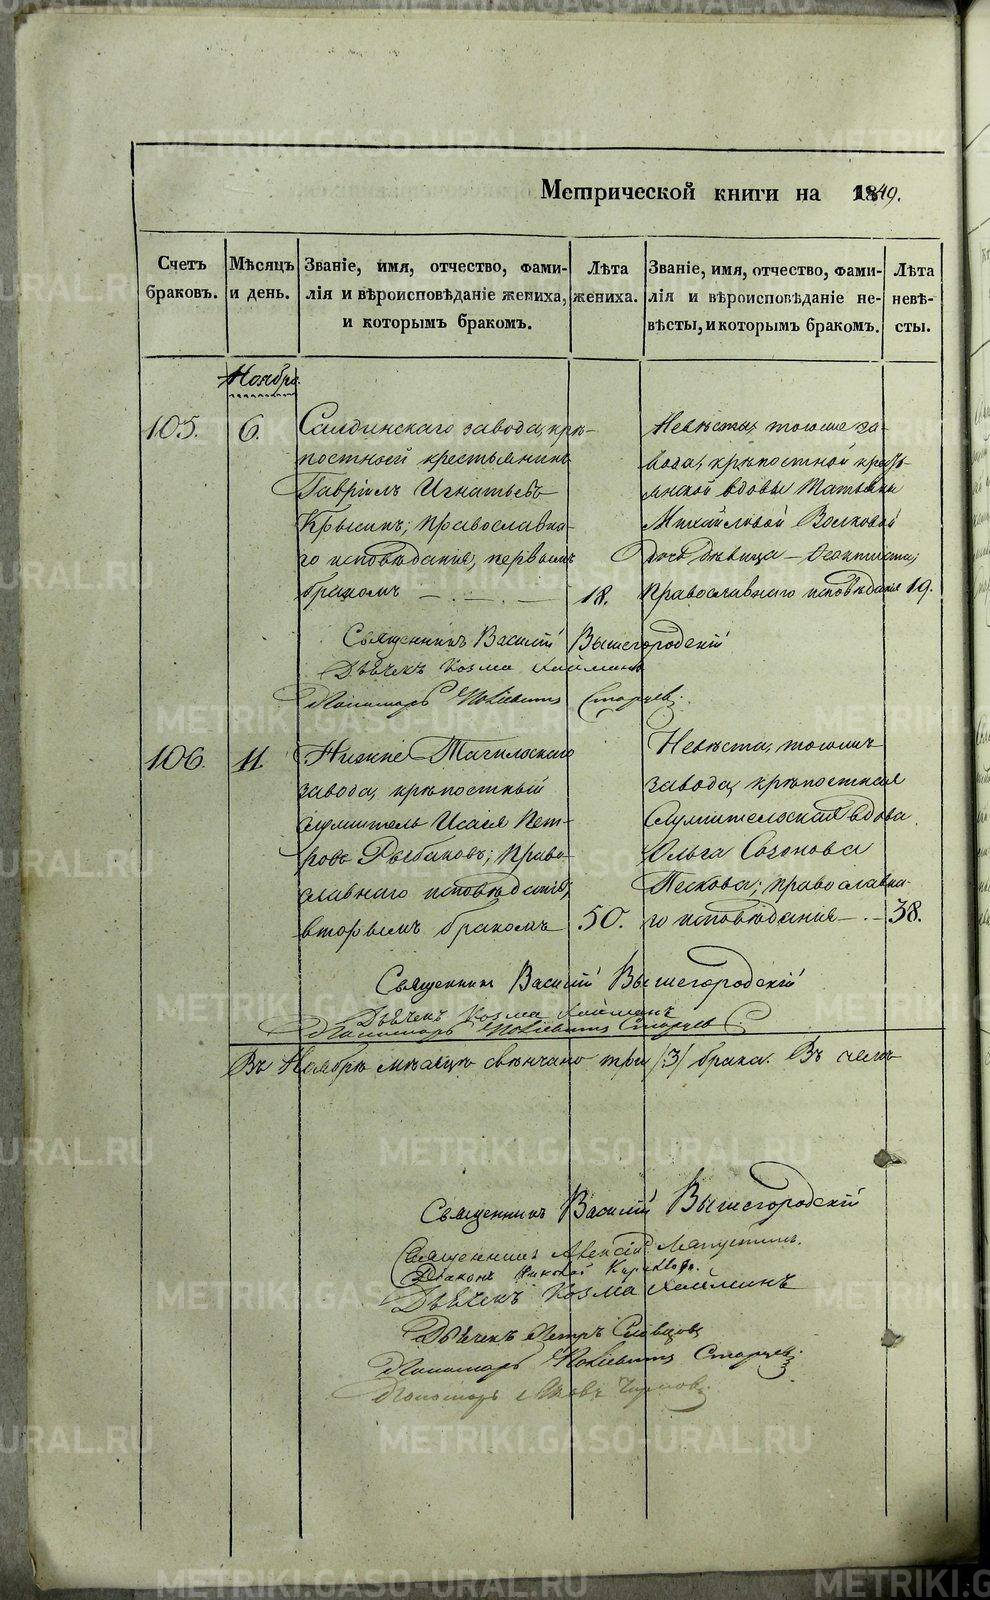 Метрической книги на 1849.
Счетъ браковъ.
Мѣсяцъ и день.
Званіе, имя, отчество, фами-
лія и вѣроисповѣданіе жениха,
и которымъ бракомъ.
Лѣта жениха.
Званіе, имя, отчество, фами-
лія и вѣроисповѣданіе не-
вѣсты, и которымъ бракомъ.
Лѣта невѣ-
сты.
Ноябрь.
105.
6.
Салдинскаго завода, крѣ-
постной крестьянинъ
Гавріилъ Игнатьевъ
Крысинъ; православна-
го исповѣданія, первымъ
бракомъ
18.
Невѣста, тогоже за-
вода, крѣпостной кресть-
янской вдовы Татьяны
Михайловой Волковой
дочь дѣвица – Феоктиста;
православнаго исповѣданія
19.
Священникъ Василій Вышегородскій
Дьячекъ Козма
Пономарь Старцевъ.
106.
11.
Нижне Тагильскаго
завода, крѣпостный
служитель Исаія Пет-
ровъ Рыбаковъ; право-
славнаго исповѣданія;
вторымъ бракомъ
50.
Невѣста, тогожъ
завода, крѣпостная
служительская вдова
Ольга Созонова
Пескова; православна-
го исповѣданія
38.
Священникъ Василій Вышегородскій
Дьячекъ Козма
Пономарь Старцевъ
Въ Ноябрѣ мѣсяцѣ свѣнчано три /3/ брака. Въ чемъ
Священникъ Василій Вышегородскій
Священникъ Алексій Ляпустинъ.
Діаконъ Николай
Дьячекъ Козма
Дьячекъ Петръ Словцовъ
Пономарь Старцевъ.
Пономарь Яковъ
METRIKI.GASO-URAL.RU